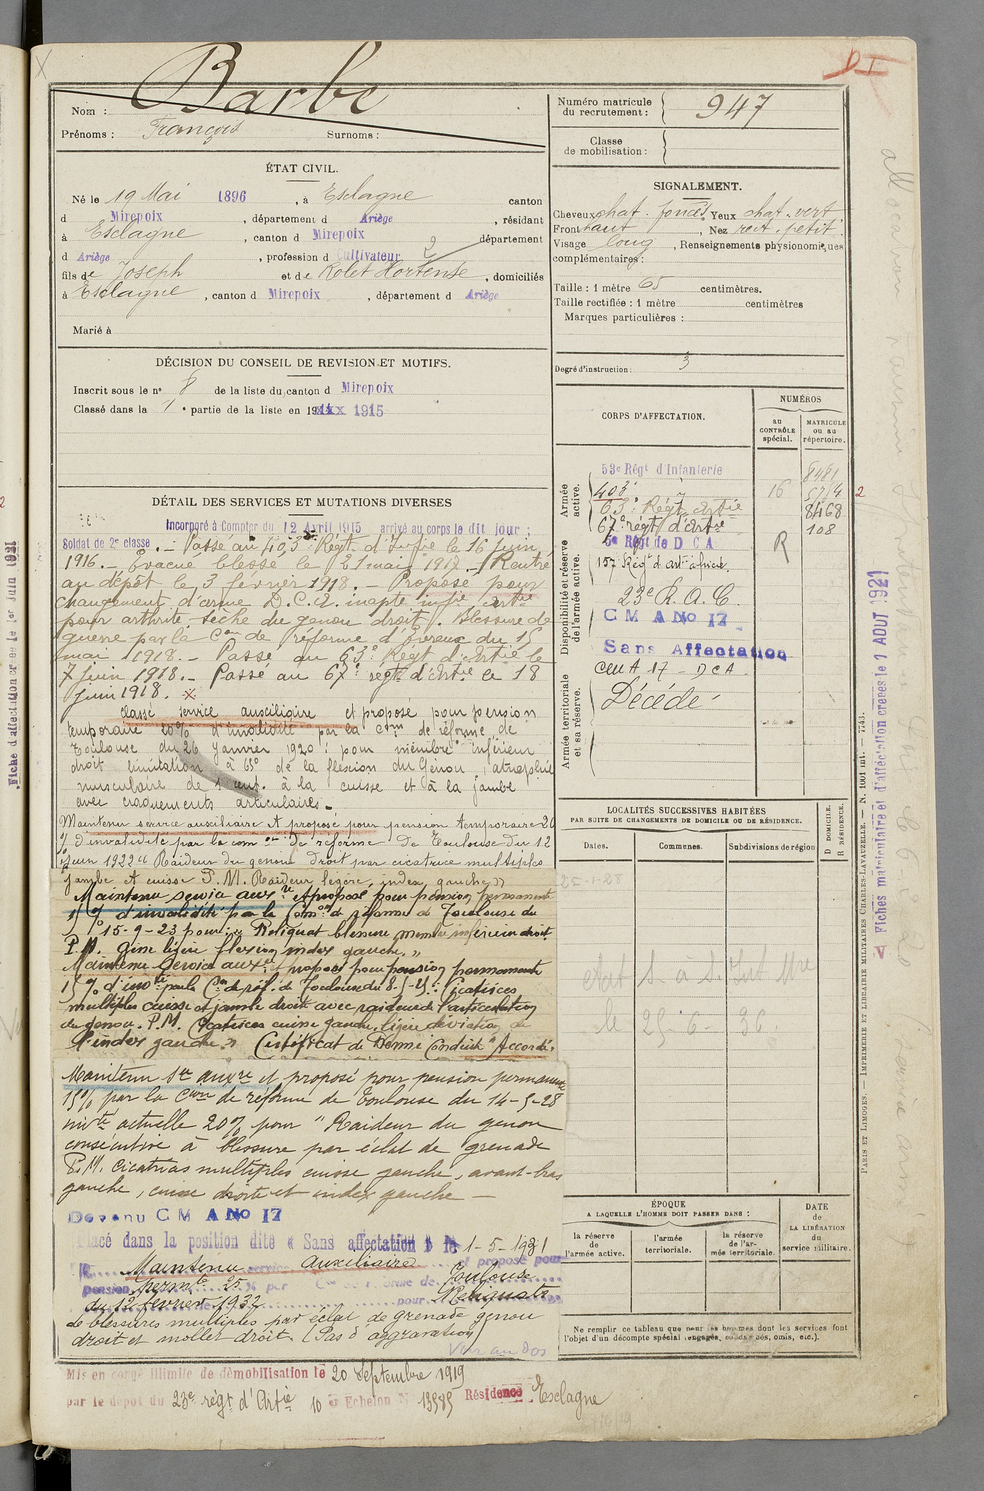 Barbe
Nom :
Prénoms : François Surnoms :
ÉTAT CIVIL.
Né le 19 Mai 1896, à Esclagne canton
d Mirepoix, département d Ariège, résidant
à Esclagne, canton d Mirepoix département
d Ariège, profession d Cultivateur 2
fils de Joseph et de Rolet Hortense, domiciliés
à Esclagne, canton d Mirepoix, département d Ariège
Marié à
DÉCISION DU CONSEIL DE REVISION ET MOTIFS.
Inscrit sous le n° 8 de la liste du canton d Mirepoix
Classé dans la 1e partie de la liste en 1915
DÉTAIL DES SERVICES ET MUTATIONS DIVERSES
Incorporé à Compter du 12 Avril 1915 arrivé au corps le dit jour ;
Soldat de 2e classe. - Passé au 403e Régt d'Infie le 16 juin
1916. - Évacué blessé le 21 mai 1917. Rentré
au dépôt le 3 février 1918. Proposé pour
changement d'arme D.C.A. inapte infie artie
pour arthrite sèche du genou droit. Blessure de
guerre par la Con de réforme d'Évreux du 15
mai 1918. - Passé au 63e Régt d'Artie le
7 juin 1918. - Passé au 67e régt d'Artie le 18
juin 1918.
Classé service auxiliaire et proposé pour pension
temporaire 20% d'invalidité par la Com de réforme de
Toulouse du 26 janvier 1920 : pour membre inférieur
droit limitation à 65° de la flexion du Genou, atrophie
musculaire de 1 cent. à la cuisse et à la jambe
avec craquements articulaires.
Maintenu service auxiliaire et proposé pour pension temporaire 20
% d'invalidité par la Com on de réforme de Toulouse du 12
juin 1922 "Raideur du genou droit par cicatrice multiples
jambe et cuisse P.M. Raideur légère, index gauche"
Maintenu service auxre et proposé pour pension permanente
15% d'invalidité par la Comon de réforme de Toulouse du
15-9-23 pour : Reliquat blessure membre inférieur droit
P.M. Gêne légère flexion index gauche."
Maintenu Service auxre et proposé pour pension permanente
15% d'invté par la Con de réf. de Toulouse du 8-5-25 : Cicatrices
multiples cuisse et jambe droite avec raideur de l'articulation
du genou. P.M. Cicatrices cuisse gauche, légère déviation de
l'index gauche." Certificat de Bonne Conduite "Accordé.
Maintenu Sce auxre et proposé pour pension permanente
15% par la Com de réforme de Toulouse du 14-5-28
invté actuelle 20% pour "Raideur du genou
consécutive à blessure par éclat de grenade
P.M. cicatrices multiples cuisse gauche, avant-bras
gauche, cuisse droite et index gauche -
Devenu C M A No 17
Placé dans la position dite « Sans affectation » le 1-5-1931
Maintenu service auxiliaire et proposé pour
pension permte 25 % par Con de réforme de Toulouse
du 12 février 1932 pour Reliquats
de blessures multiples par éclat de grenade genou
droit et mollet droit. (Pas d'aggravation)
Voir au dos
Mis en congé illimité de démobilisation le 20 Septembre 1919
par le dépôt du 23e régt d'Artie 10 e Echelon N 13585 Résidence Esclagne
Numéro matricule
du recrutement : 947
Classe
de mobilisation :
SIGNALEMENT.
Cheveux chat. foncés Yeux chat. vert
Front haut, Nez rect. petit
Visage long, Renseignements physionomiques
complémentaires :
Taille : 1 mètre 65 centimètres.
Taille rectifiée : 1 mètre centimètres
Marques particulières :
Degré d'instruction : 3
CORPS D'AFFECTATION.
NUMÉROS
AU CONTRÔLE spécial.
MATRICULE OU AU répertoire.
Armée active.
53e Régt d'Infanterie 8481
403e 16 5714 2
63e Régt Artie 8468
67e régt d'Artie 108
Disponibilité et réserve de l'armée active.
6e Régt de D C A R
157 Rég d'art à pied
23e R.A.C.
C M A No 17
Sans Affectation
Armée territoriale et sa réserve.
CMA 17 - DCA
Décédé
LOCALITÉS SUCCESSIVES HABITÉES
PAR SUITE DE CHANGEMENTS DE DOMICILE OU DE RÉSIDENCE.
Dates.
Communes.
Subdivisions de région
D DOMICILE.
R RÉSIDENCE.
ÉPOQUE
A LAQUELLE L'HOMME DOIT PASSER DANS :
la réserve de l'armée active.
l'armée territoriale.
la réserve de l'armée territoriale.
DATE de LA LIBÉRATION du service militaire.
Ne remplir ce tableau que pour les hommes dont les services font
l'objet d'un décompte spécial (engagés, condamnés, omis, etc.).
PARIS ET LIMOGES. — IMPRIMERIE ET LIBRAIRIE MILITAIRES CHARLES-LAVAUZELLE. — N. 1001 int. — 7743.
Fiches matriculaire et d'affectation créées le 1 AOUT 1921
Fiche d'affectation créée le 1er Juin 1921